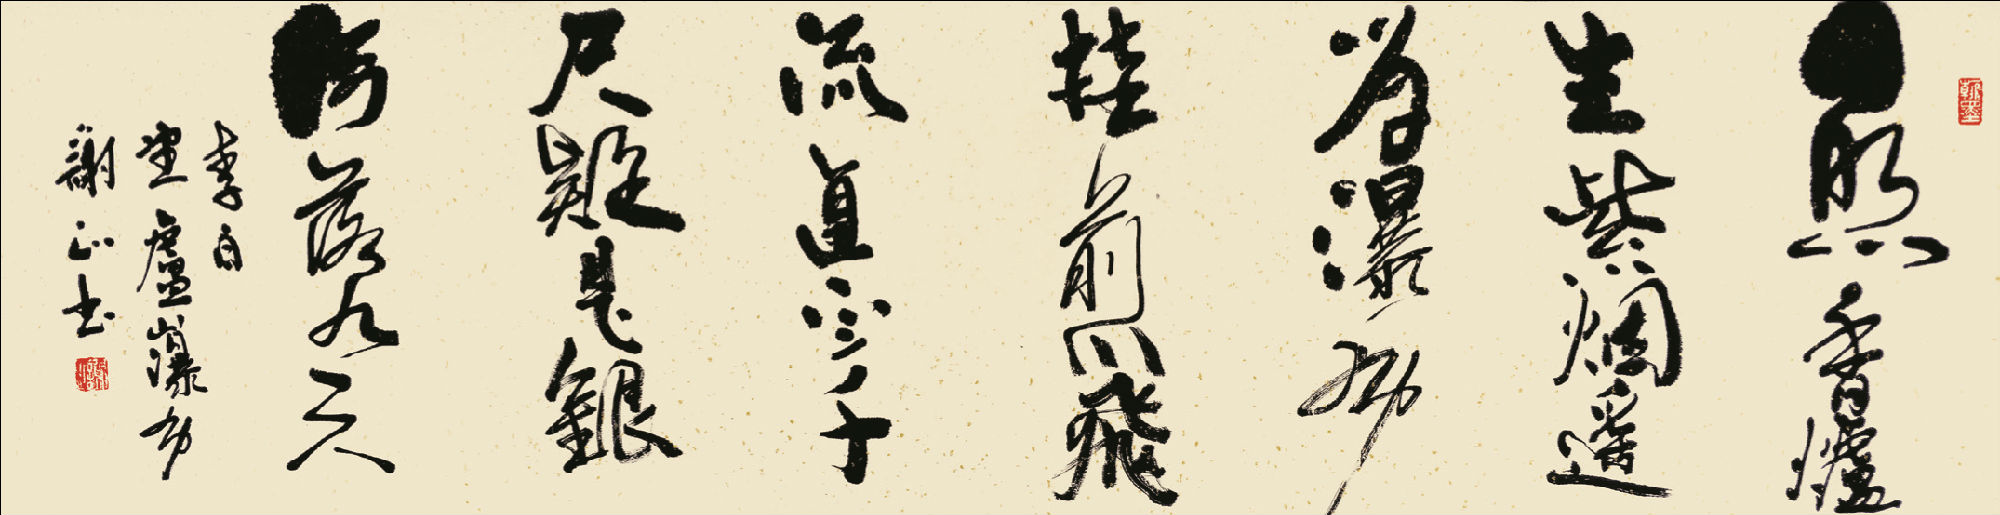 翰墨
日照香爐
生紫烟遥
看瀑布
挂前川飛
流直下三千
尺疑是銀
河落九天
李白
望廬山瀑布
謝正书